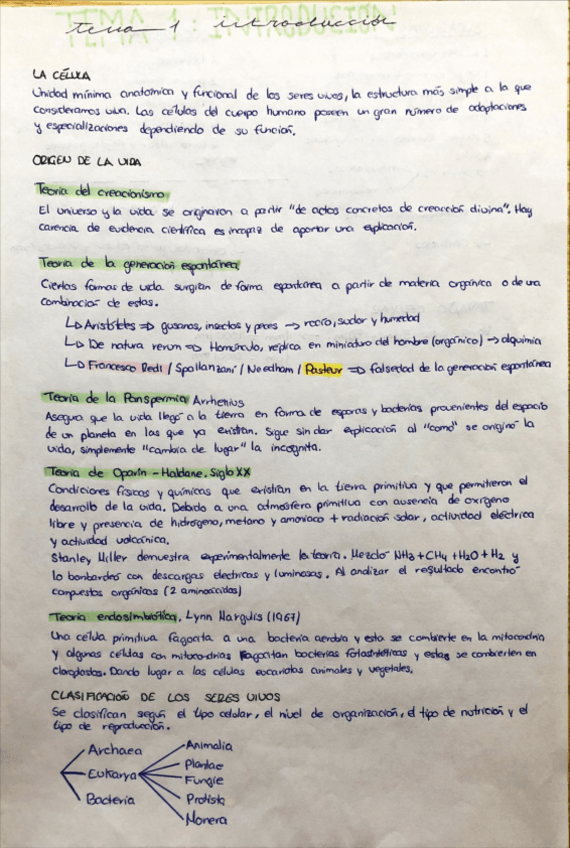 tema 1 introducción
LA CÉLULA
Unidad mínima anatomica y funcional de los seres vivos, la estructura más simple a la que
consideramos viva. Las células del cuerpo humano poseen un gran número de adaptaciones
y especializaciones dependiendo de su función.
ORIGEN DE LA VIDA
Teoria del creacionismo
El universo y la vida se originaron a partir "de actos concretos de creacción divina". Hay
carencia de evidencia cientifica es incapaz de aportar una explicación.
Teoria de la generación espontánea
Ciertas formas de vida surgian de forma espontanea a partir de materia orgánica o de una
combinación de estas.
↳ Aristóteles => gusanos, insectos y peces → rocío, sudor y humedad
↳ De natura rerum => Homúnculo, replica en miniatura del hombre (orgánico) → alquimia
↳ Francesco Redi / Spallanzani / Needham / Pasteur => falsedad de la generación espontánea
Teoria de la Panspermia, Arrhenius
Asegura que la vida llegó a la tierra en forma de esporas y bacterias provenientes del espacio
de un planeta en las que ya existian. Sigue sin dar explicación al "como" se originó la
vida, simplemente "cambia de lugar" la incognita.
Teoria de Oparin - Haldane. Siglo XX
Condiciones fisicas y químicas que existian en la tierra primitiva y que permitieron el
desarrollo de la vida. Debido a una admosfera primitiva con ausencia de oxigeno
libre y presencia de hidrogeno, metano y amoniaco + radiación solar, actividad electrica
y actividad volcánica.
Stanley Miller demuestra experimentalmente la teoria. Mezcló NH3 + CH4 + H2O + H2 y
lo bombardeó con descargas electricas y luminosas. Al analizar el resultado encontró
compuestos orgánicos (2 aminoacidos)
Teoria endosimbiótica, Lynn Margulis (1967)
Una célula primitiva fagocita a una bacteria aerobia y esta se combierte en la mitocondria
y algunas células con mitocondrias fagocitan bacterias fotosintéticas y estas se combierten en
cloroplastos. Dando lugar a las células eucariotas animales y vegetales.
CLASIFICACIÓN DE LOS SERES VIVOS
Se clasifican según el tipo celular, el nivel de organización, el tipo de nutrición y el
tipo de reproducción.
Archaea
Eukarya
Bacteria
Animalia
Plantae
Fungie
Protista
Monera